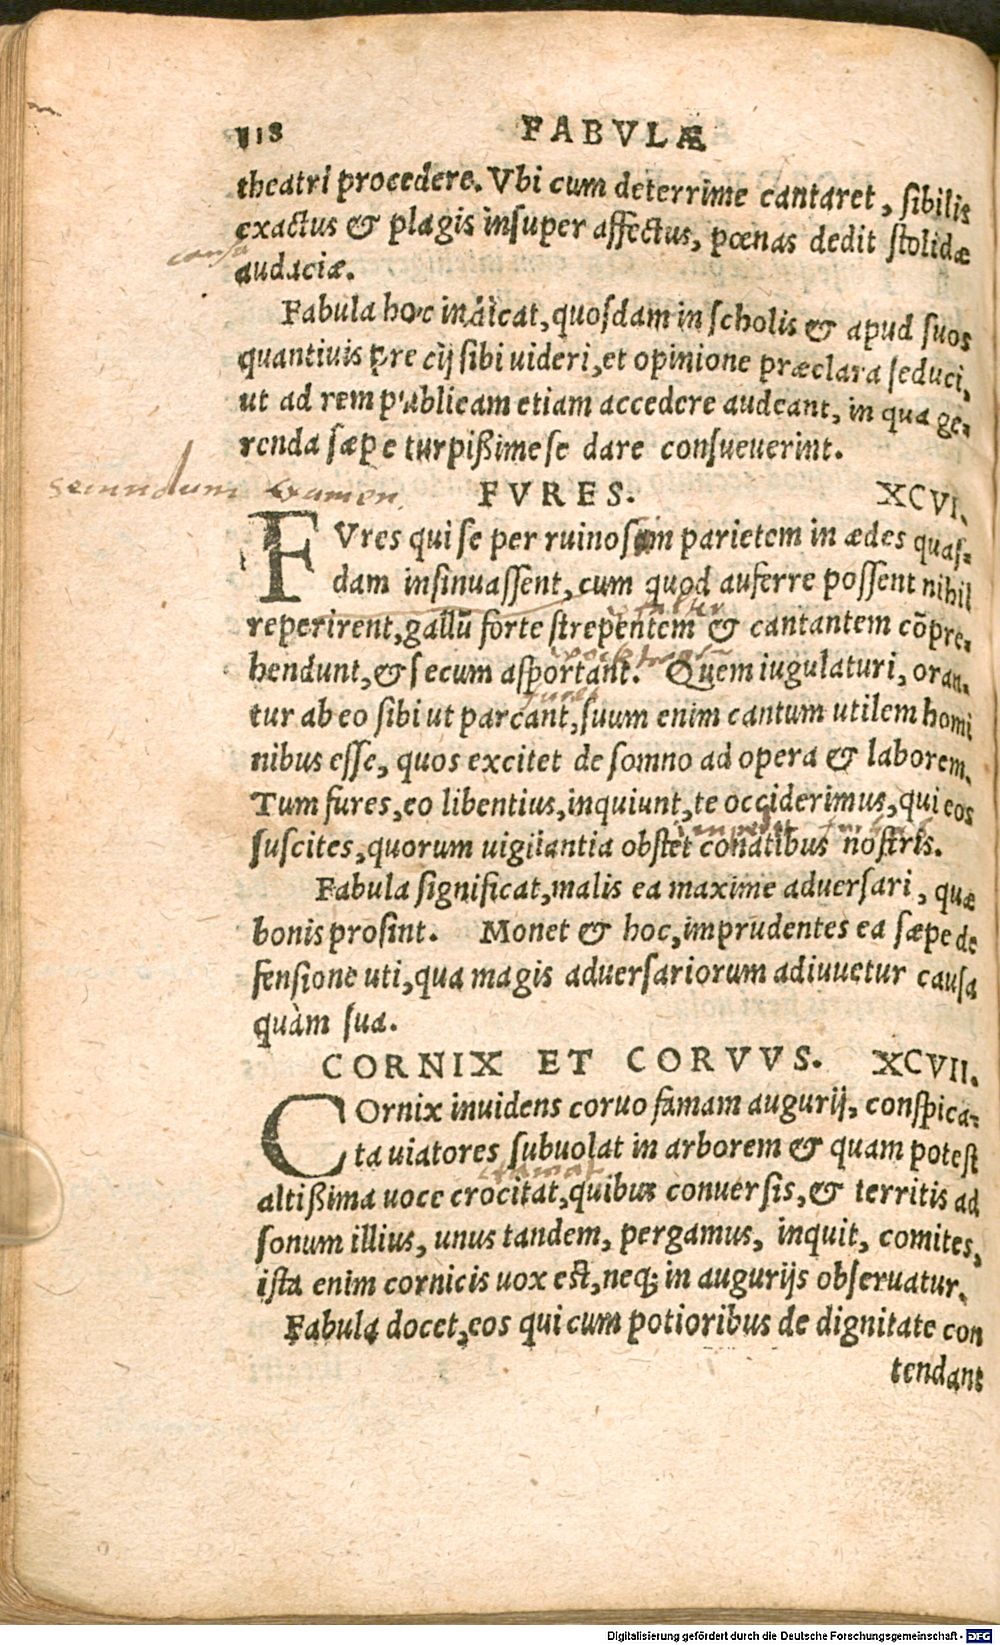 118 FABVLÆ
theatri procedere. Vbi cum deterrime cantaret, ſibilis
exactus & plagis inſuper affectus, pœnas dedit ſtolidæ
causa
audaciæ.
Fabula hoc indicat, quoſdam in ſcholis & apud ſuos
quantiuis precij ſibi uideri, et opinione præclara ſeduci,
ut ad rem publicam etiam accedere audeant, in qua ge-
renda ſæpe turpißime ſe dare conſueuerint.
secundum examen
FVRES. XCVI.
FVres qui ſe per ruinoſum parietem in ædes quaſ-
dam inſinuaſſent, cum quod auferre poſſent nihil
reperirent, gallū forte ſtrepentem & cantantem cōpre-
hendunt, & ſecum aſportant. Quem iugulaturi, oran-
fures
tur ab eo ſibi ut parcant, ſuum enim cantum utilem homi
nibus eſſe, quos excitet de ſomno ad opera & laborem.
Tum fures, eo libentius, inquiunt, te occiderimus, qui eos
impedit
ſuſcites, quorum uigilantia obſtet conatibus noſtris.
Fabula ſignificat, malis ea maxime aduerſari, quæ
bonis proſint. Monet & hoc, imprudentes ea ſæpe de
fenſione uti, qua magis aduerſariorum adiuuetur cauſa
quàm ſua.
CORNIX ET CORVVS. XCVII.
COrnix inuidens coruo famam augurij, conſpica-
ta uiatores ſubuolat in arborem & quam poteſt
clamat
altißima uoce crocitat, quibus conuerſis, & territis ad
ſonum illius, unus tandem, pergamus, inquit, comites,
iſta enim cornicis uox eſt, neq; in augurijs obſeruatur.
Fabula docet, eos qui cum potioribus de dignitate con
tendant
Digitalisierung gefördert durch die Deutsche Forschungsgemeinschaft - DFG